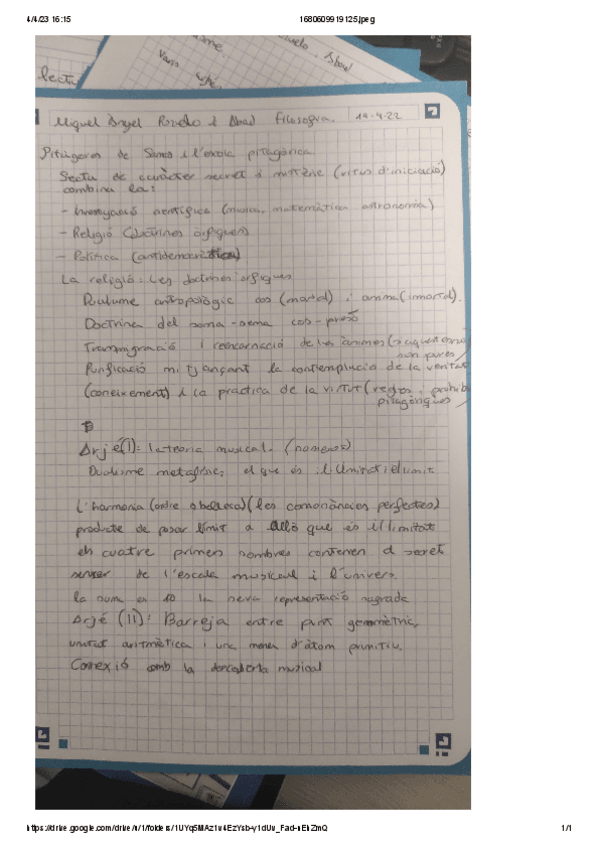 4/4/23 16:15
1680609919125.jpeg
lectu
Vam
Abad
Miquel Angel Rovelo i Abad Filosofia. 19-4-22
Pitàgores de Samos i l'escola pitagòrica
Secta de caràcter secret i mistèric (ritus d'iniciació)
combina la:
- Investigació científica (música, matemàtica astronomia)
- Religió (doctrines òrfiques)
- Política
La religió: Les doctrines òrfiques
Dualisme antropològic cos (mortal) i anima (inmortal).
Doctrina del soma-sema cos-presó
Transmigració i reencarnació de les ànimes
non pures
Purificació mitjançant la contemplació de la veritat
(coneixement) i la pràctica de la virtut (regles i prohib
pitagòriques
Arjé (I): la teoria musical. (nombres)
Dualisme metafísic: el que és il·limitat i el límit
L'harmonia (ordre i bellesa) (les consonàncies perfectes)
producte de posar límit a allò que és il·limitat
els cuatre primers nombres contenen el secret
de l'escala musical i l'univers.
la suma es 10 la seva representació sagrada
Arjé (II): Barreja entre punt geomètric,
unitat aritmètica i una mena d'àtom primitiu.
Connexió amb la musical
https://drive.google.com/drive/u/1/folders/1UYq5MAz1v4EzYsb-y1dUv_Fad-nEhZmQ
1/1